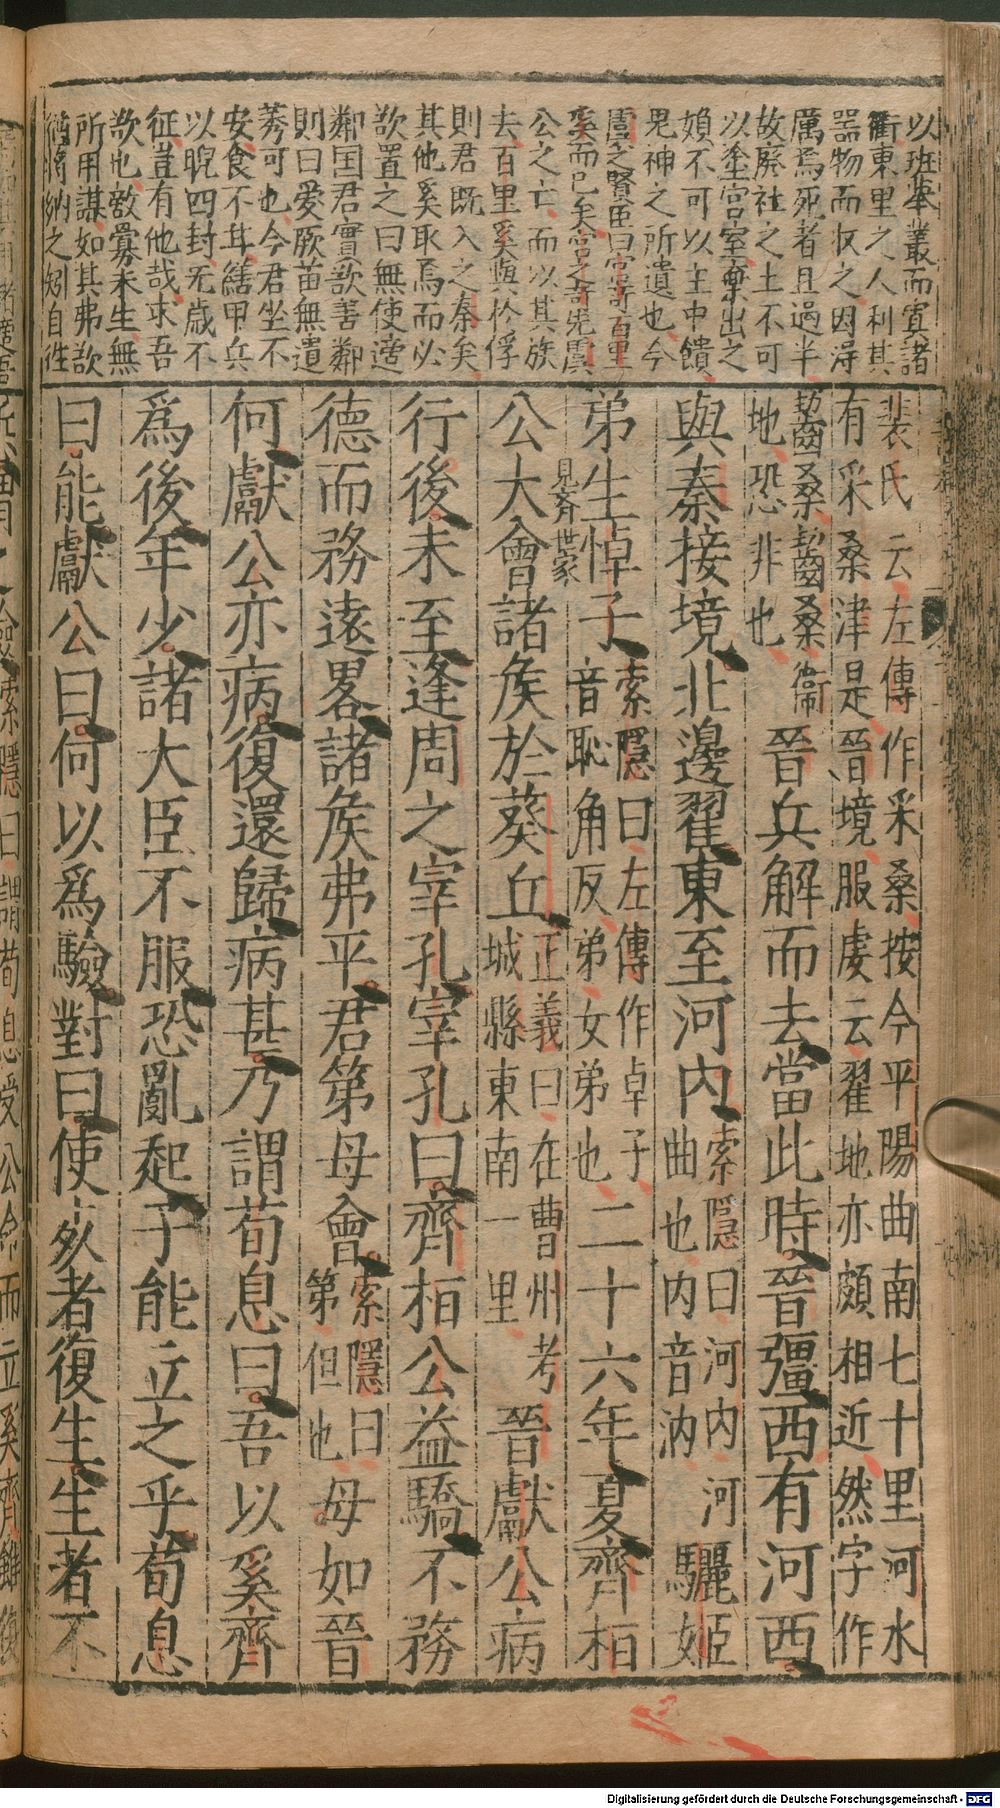 以班奉叢而寘諸
衢東里之人利其
器物而収之因淂
厲焉死者且過半
故廢社之土不可
以塗宫室棄出之
媍不可以主中饋
鬼神之所遺也今
虞之賢臣曰宫竒百里
奚而已矣宫之竒先虞
公之亡而以其族
去百里奚與扵俘
則君既入之秦矣
其他奚取焉而必
欲置之曰無使遠
鄰国君實欲善鄰
則曰愛厥苗無遺
莠可也今君坐不
安食不甘繕甲兵
以睨四封无歳不
征豈有他哉求吾
欲也敵釁未生無
所用謀如其弗欲
猶將納之矧自徃
裴氏云左傳作采桑按今平陽曲南七十里河水
有采桑津是晋境服虔云翟地亦頗相近然字作
齧桑齧桑衞
地恐非也
晉兵解而去當此時晉彊西有河西
與秦接境北邊翟東至河内
索隠曰河内河
曲也内音汭
驪姬
弟生悼子
索隠曰左傳作卓子
音恥角反弟女弟也
二十六年夏齊桓
見齊世家
公大會諸侯於葵丘
正義曰在曹州考
城縣東南一里
晉獻公病
行後未至逢周之宰孔宰孔曰齊桓公益驕不務
德而務遠畧諸侯弗平君第毋會
索隠曰
第但也
毋如晉
何獻公亦病復還歸病甚乃謂荀息曰吾以奚齊
爲後年少諸大臣不服恐亂起子能立之乎荀息
曰能獻公曰何以爲驗對曰使死者復生生者不
索隠曰謂荀息受公命而立奚齊雖復
Digitalisierung gefördert durch die Deutsche Forschungsgemeinschaft - DFG